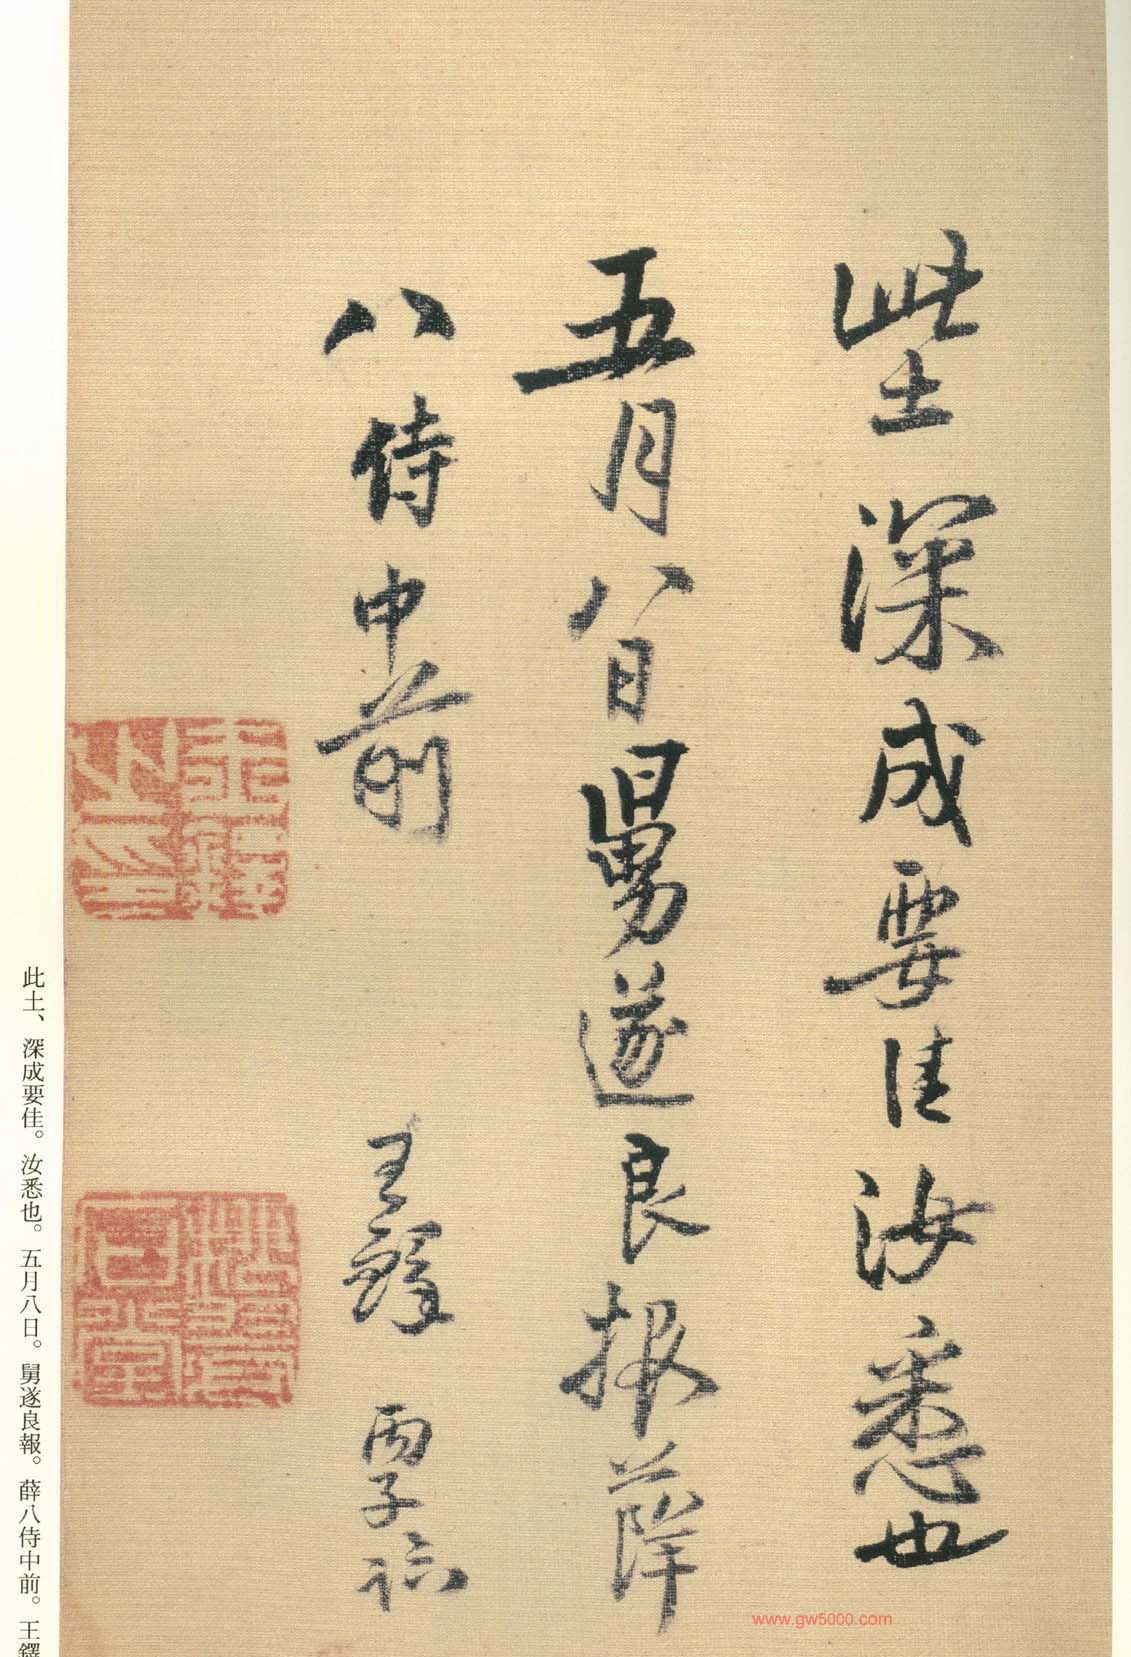 此土深成要佳汝悉也
五月八日舅遂良报薛
八侍中前
王鐸 丙子
王鐸之印
此土、深成要佳。汝悉也。五月八日。舅遂良報。薛八侍中前。王鐸
www.gw5000.com